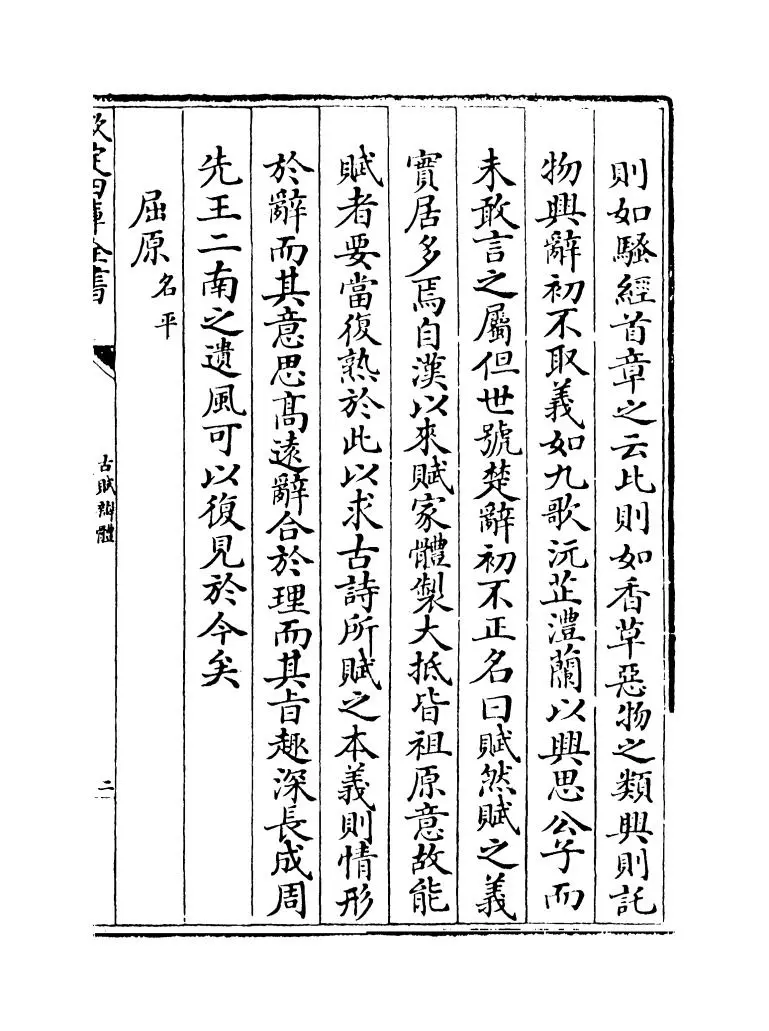 則如騷經首章之云比則如香草惡物之類興則託
物興辭初不取義如九歌沅芷澧蘭以興思公子而
未敢言之屬但世號楚辭初不正名曰賦然賦之義
實居多焉自漢以來賦家體製大抵皆祖原意故能
賦者要當復熟於此以求古詩所賦之本義則情形
於辭而其意思髙遠辭合於理而其旨趣深長成周
先王二南之遺風可以復見於今矣
屈原名平
欽定四庫全書
古賦辯體
二